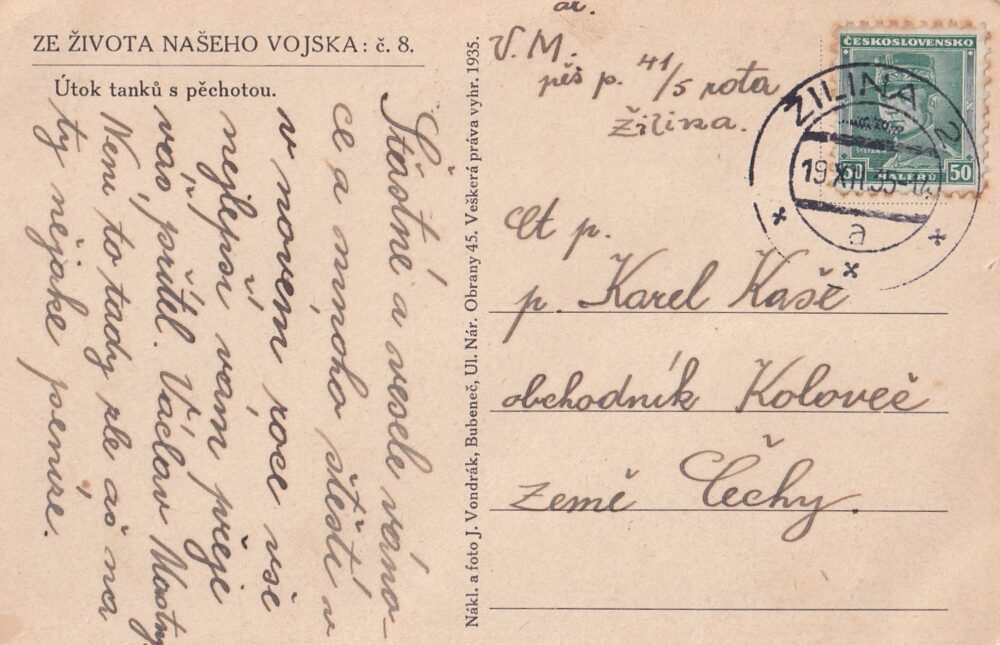 ZE ŽIVOTA NAŠEHO VOJSKA: č. 8.
Útok tanků s pěchotou.
Štástné a veselé váno-
ce a mnoho štěstí v
v novém roce vše
nejlepší vám přeje
váš přítel. Václav Mastný
Neni to tady zle až na
ty nějaké peníze.
Nákl. a foto J. Vondrák, Bubeneč, Ul. Nár. Obrany 45. Veškerá práva vyhr. 1935.
ar.
V. M.
pěš p. 41/5 rota
Žilina.
ČESKOSLOVENSKO
50 HALÉŘŮ 50
ŽILINA 2
19 XII 35
a
Ct p.
p. Karel Kaše
obchodník Koloveč
země Čechy.